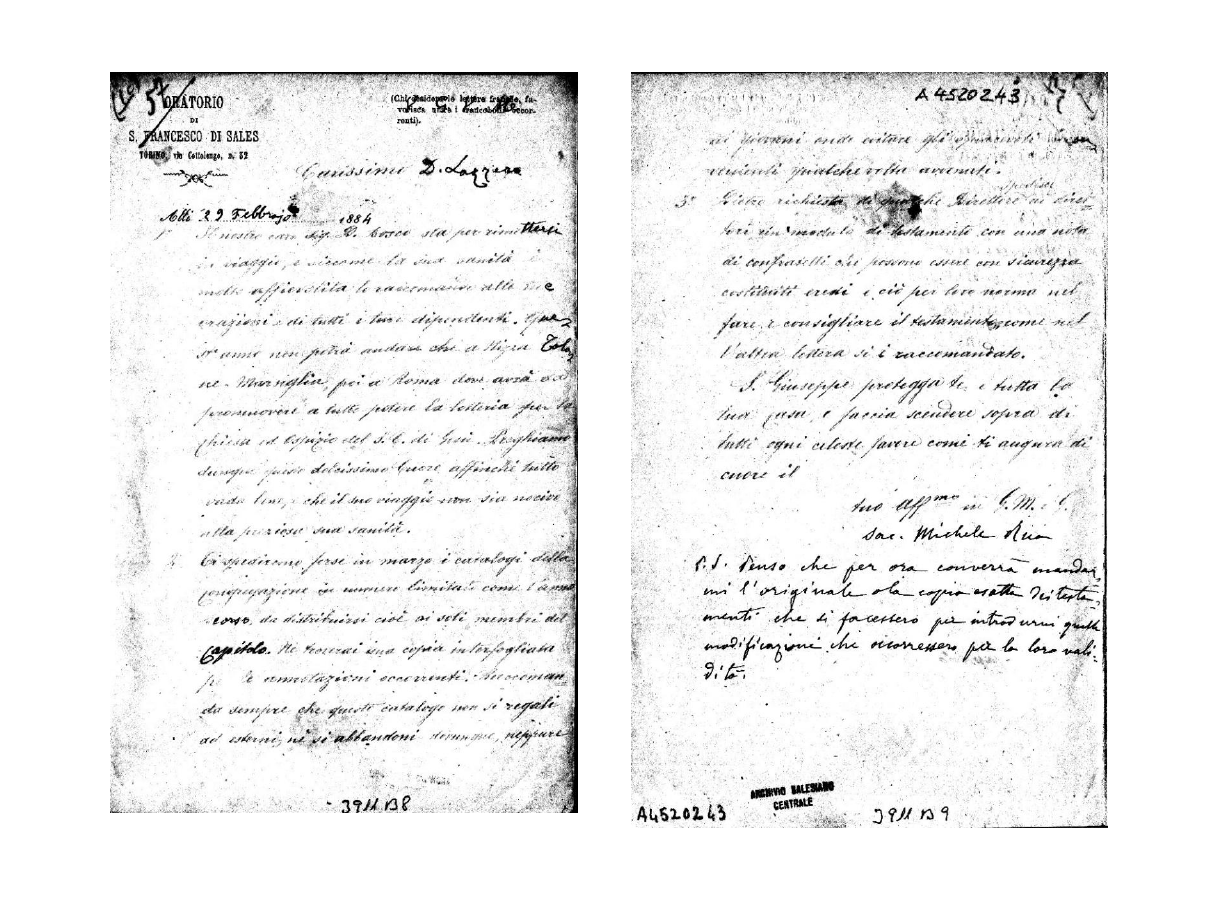 ORATORIO
DI
S. FRANCESCO DI SALES
TORINO, via Cottolengo, n. 32
(Chi desiderasse lettera franca, fa-
vorisca unire i francobolli occor-
renti).
Carissimo D. Lazzero
Alli 29 Febbrajo 1884
1° Il nostro caro Sig. D. Bosco sta per rimettersi
in viaggio, e siccome la sua sanità è
molto affievolita lo raccomando alle tue
orazioni e di tutti i tuoi dipendenti. Que-
st'anno non potrà andare che a Nizza Tolo-
ne - Marsiglia, poi a Roma dove avrà da
promuovere a tutto potere la lotteria per la
chiesa ed Ospizio del S. C. di Gesù. Preghiamo
dunque questo dolcissimo Cuore affinchè tutto
vada bene, e che il suo viaggio non sia nocivo
alla preziosa sua sanità.
2° Ti spediremo forse in marzo i cataloghi della
congregazione in numero limitato come l'anno
corso, da distribuirsi cioè ai soli membri del
Capitolo. Ne troverai una copia interfogliata
le annotazioni occorrenti. Raccoman-
da sempre che questo catalogo non si regali
ad esterni, nè si abbandoni dovunque, neppure
3911 B 8
A 4520243
ai giovani onde evitare gli
venienti qualche volta avvenuti.
spedisco
3° Dietro richiesta di qualche Direttore ai diret-
tori un modulo di testamento con una nota
di confratelli che possono essere con sicurezza
costituiti eredi e ciò per loro norma nel
fare, e consigliare il testamento, come nel
l'altra lettera si è raccomandato.
S. Giuseppe protegga te, e tutta la
tua casa, e faccia scendere sopra di
tutti ogni celeste favore come ti augura di
cuore il
tuo aff.mo in G. M. e G.
Sac. Michele Rua
P.S. Penso che per ora converrà mandar-
mi l'originale o la copia esatta dei testa-
menti che si facessero per introdurvi quelle
modificazione che occorressero per la loro vali-
dità.
ARCHIVIO SALESIANO
CENTRALE
A4520243
3911 B 9